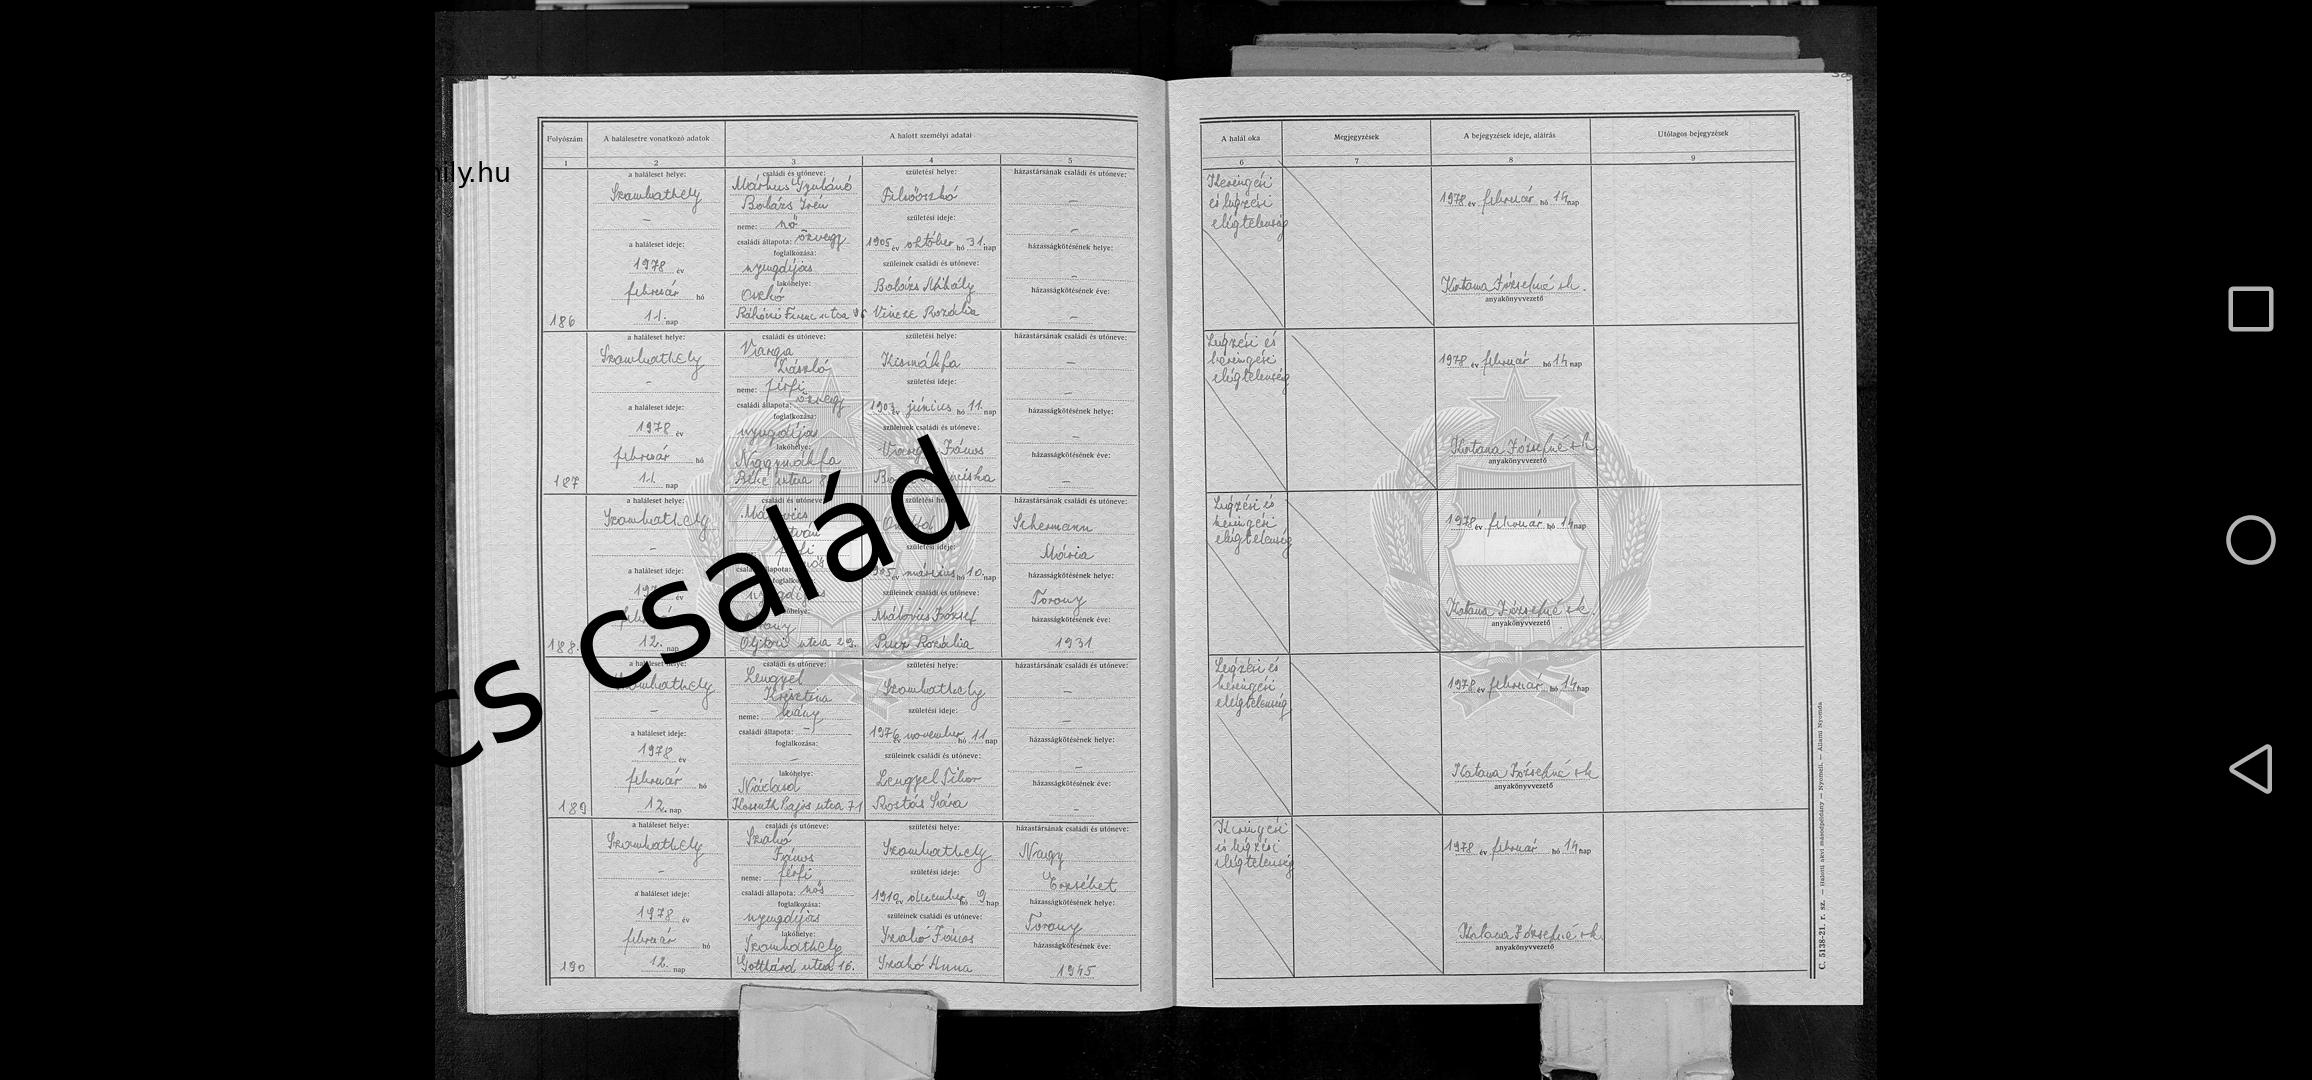 ily.hu
cs család
Folyószám
A halálesetre vonatkozó adatok
A halott személyi adatai
1
2
3
4
5
a haláleset helye:
Szombathely
—
a haláleset ideje:
1978 év
február hó
11. nap
186
családi és utóneve:
Márkus Gyuláné
Balázs Irén
neme: nő
családi állapota: özvegy
foglalkozása:
nyugdíjas
lakóhelye:
Oszkó
Rákóczi Ferenc utca
születési helye:
születési ideje:
1905 év október hó 31. nap
szüleinek családi és utóneve:
Balázs Mihály
Vincze Rozália
házastársának családi és utóneve:
—
—
házasságkötésének helye:
—
házasságkötésének éve:
—
a haláleset helye:
Szombathely
—
a haláleset ideje:
1978 év
február hó
11. nap
187
családi és utóneve:
Varga
László
neme: férfi
családi állapota: özvegy
foglalkozása:
nyugdíjas
lakóhelye:
Nagymákfa
Béke utca 8
születési helye:
Kismákfa
születési ideje:
1903 év június hó 11. nap
szüleinek családi és utóneve:
Varga János
házastársának családi és utóneve:
—
—
házasságkötésének helye:
—
házasságkötésének éve:
—
a haláleset helye:
Szombathely
—
a haláleset ideje:
év
12. nap
188.
családi és utóneve:
István
családi állapota:
utca 29.
születési helye:
születési ideje:
március hó 10. nap
szüleinek családi és utóneve:
József
Rozália
házastársának családi és utóneve:
Schermann
Mária
házasságkötésének helye:
Torony
házasságkötésének éve:
1931
a haláleset helye:
Szombathely
—
a haláleset ideje:
1978 év
február hó
12. nap
189
családi és utóneve:
Lengyel
Krisztina
neme: leány
családi állapota: —
foglalkozása:
—
lakóhelye:
Nádasd
Kossuth Lajos utca 71
születési helye:
Szombathely
születési ideje:
1976 év november hó 11 nap
szüleinek családi és utóneve:
Lengyel Tibor
Rostás Sára
házastársának családi és utóneve:
—
—
házasságkötésének helye:
—
házasságkötésének éve:
—
a haláleset helye:
Szombathely
—
a haláleset ideje:
1978 év
február hó
12. nap
190
családi és utóneve:
Szabó
János
neme: férfi
családi állapota: nős
foglalkozása:
nyugdíjas
lakóhelye:
Szombathely
Gotthárd utca 16.
születési helye:
Szombathely
születési ideje:
év december hó 9 nap
szüleinek családi és utóneve:
Szabó János
Szabó Anna
házastársának családi és utóneve:
Nagy
Erzsébet
házasságkötésének helye:
Torony
házasságkötésének éve:
1945
A halál oka
Megjegyzések
A bejegyzések ideje, aláírás
Utólagos bejegyzések
6
7
8
9
Keringési
és légzési
elégtelenség
1978 év február hó 14 nap
Katona Józsefné sk.
anyakönyvvezető
Légzési és
keringési
elégtelenség
1978 év február hó 14 nap
Katona Józsefné sk.
anyakönyvvezető
Légzési és
keringési
elégtelenség
1978 év február hó 14 nap
Katona Józsefné sk.
anyakönyvvezető
Légzési és
keringési
elégtelenség
1978 év február hó 14 nap
Katona Józsefné sk
anyakönyvvezető
Keringési
és légzési
elégtelenség
1978 év február hó 14 nap
Katona Józsefné sk.
anyakönyvvezető
C. 5138-21. r. sz. — Halotti akvi másodpéldány — Nyomell. — Állami Nyomda